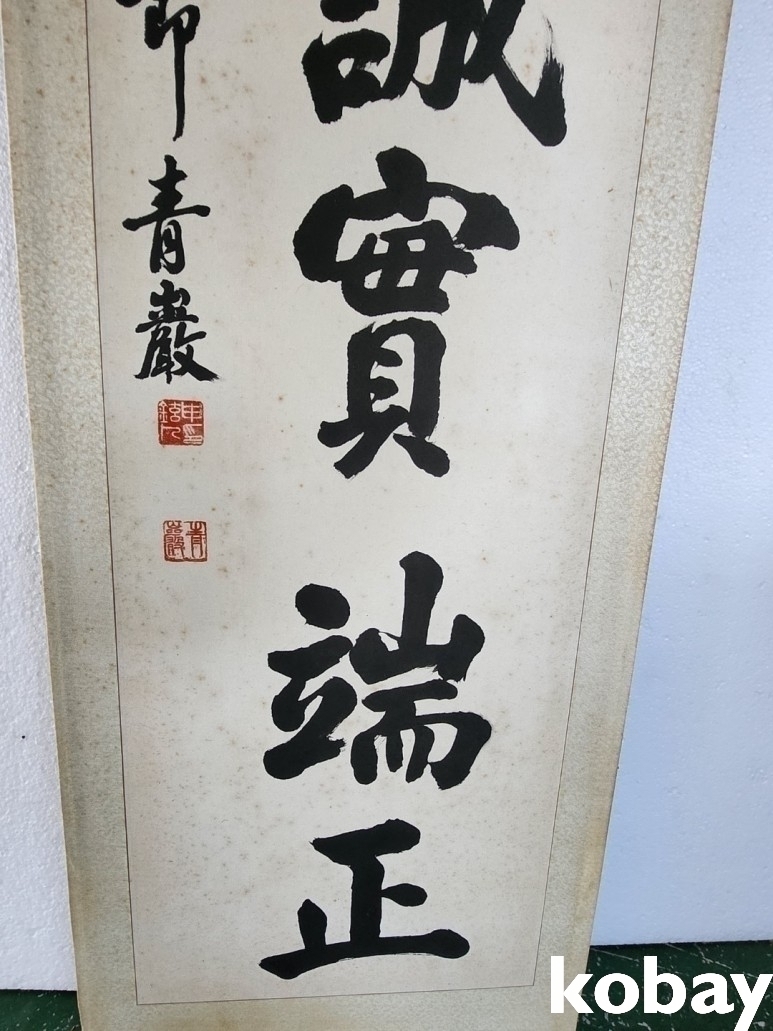 誠實端正
青巖
青巖
kobay